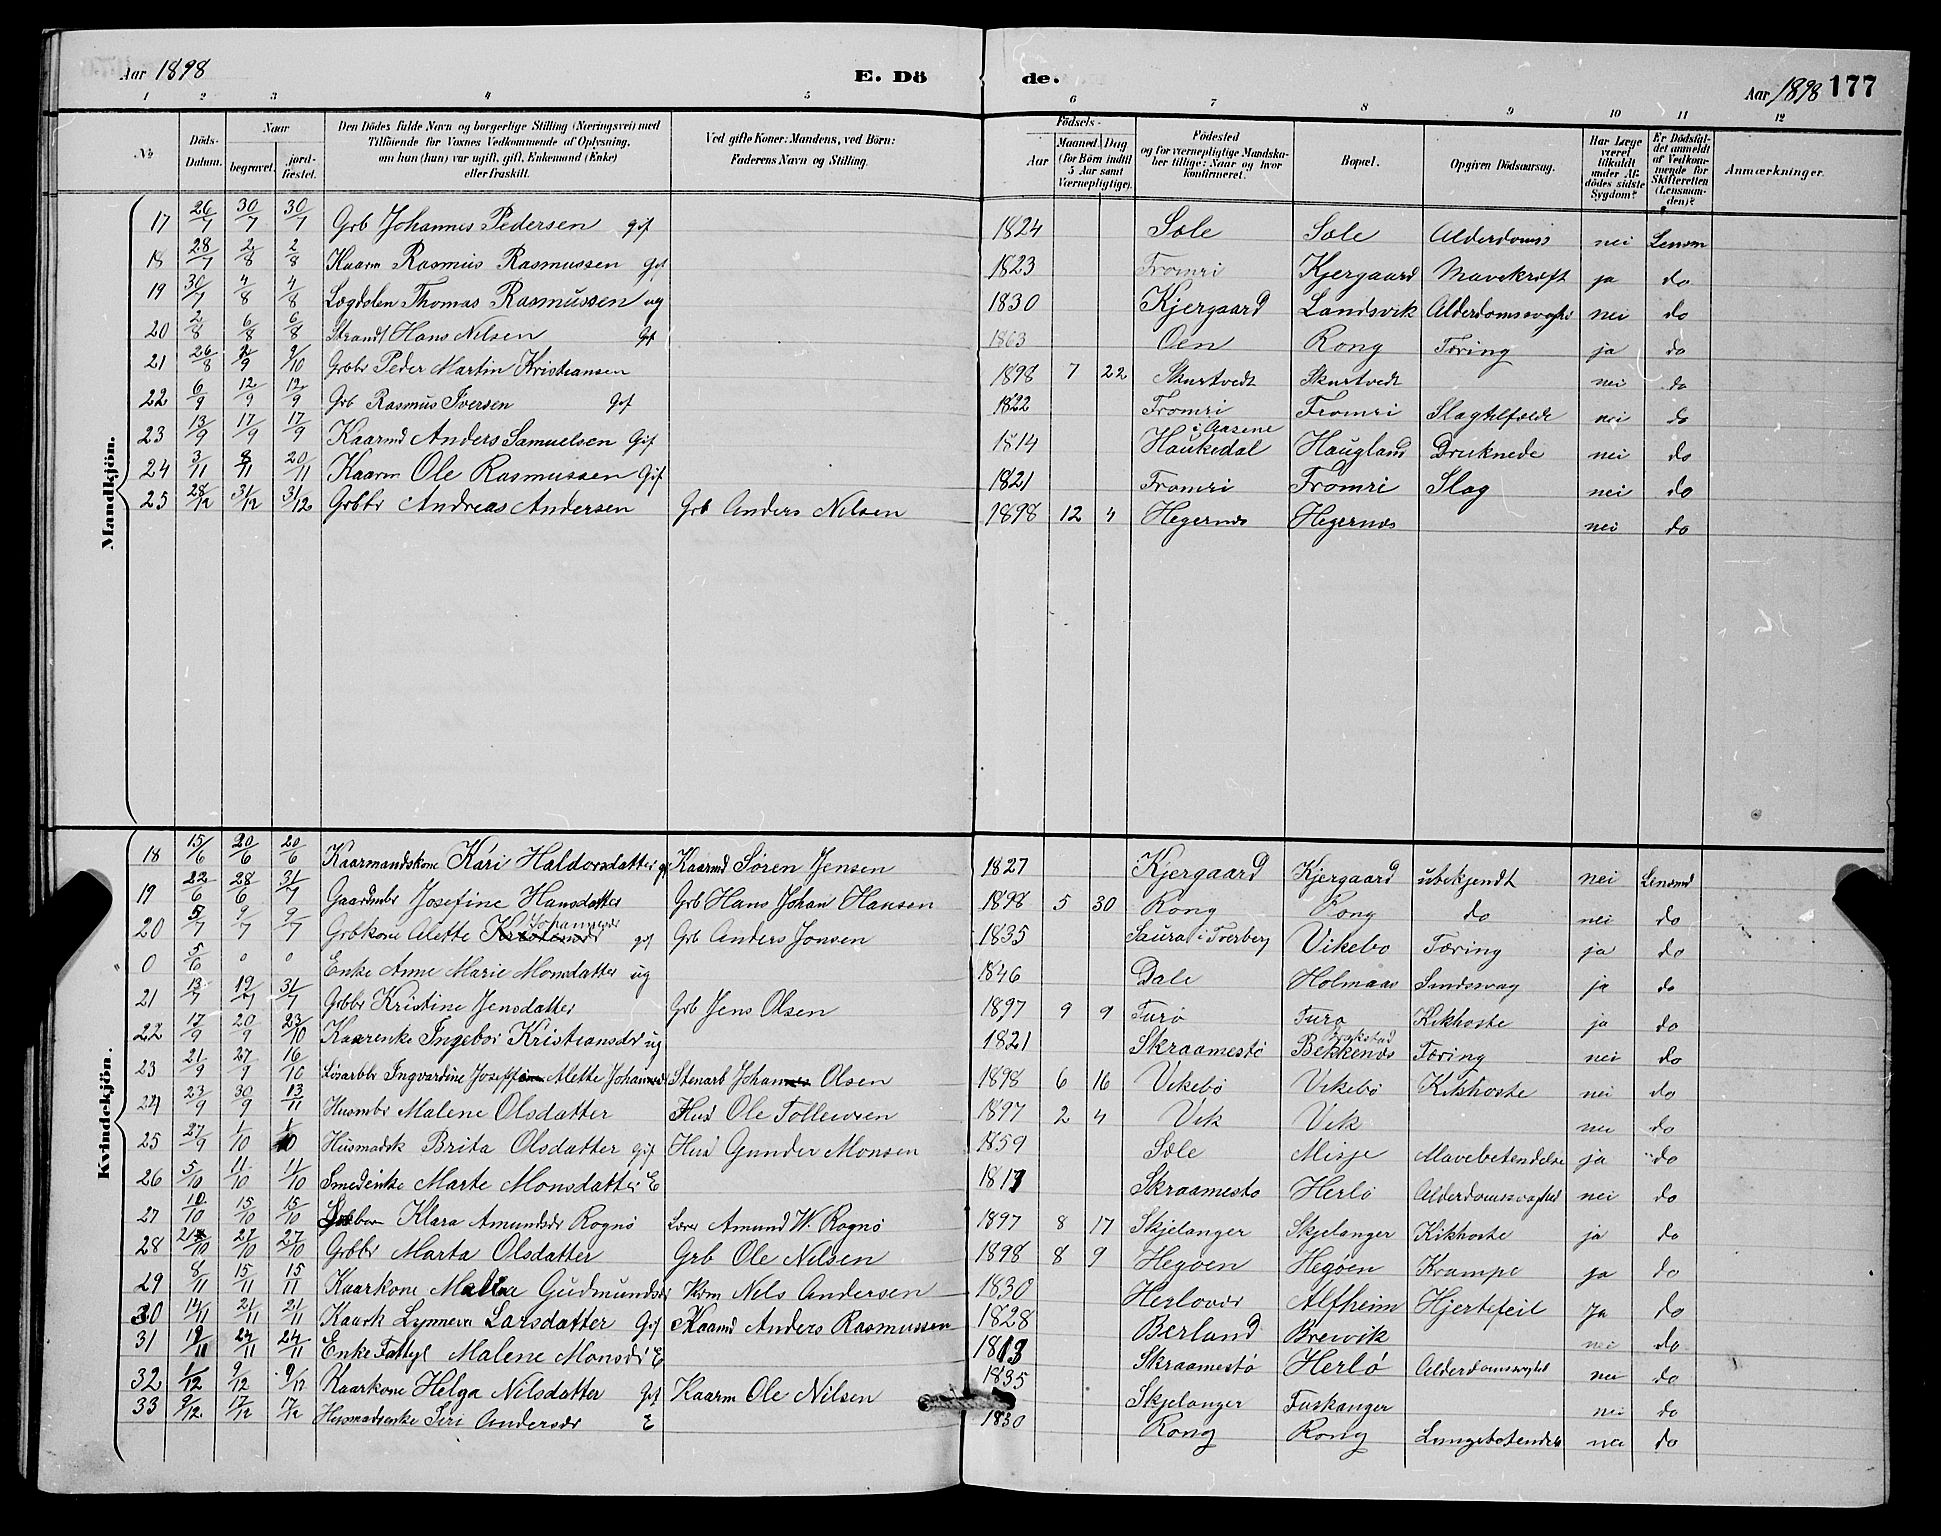 Aar 1898 E. Dö de. Aar 1898 177
1 2 3 4 5 6 7 8 9 10 11 12
No Döds-Datum. Naar begravet. jord-fæstet. Den Dödes fulde Navn og borgerlige Stilling (Næringsvei) med Tilföiende for Voxnes Vedkommende af Oplysning, om han (hun) var ugift, gift, Enkemand (Enke) eller fraskilt. Ved gifte Koner: Mandens, ved Börn: Faderens Navn og Stilling. Födsels- Aar Maaned. Dag (for Börn indtil 5 Aar samt Værnepligtige). Födested og for værnepligtige Mandskaber tillige: Naar og hvor konfirmeret. Bopæl. Opgiven Dödsaarsag. Har Læge været tilkaldt under Afdödes sidste Sygdom? Er Dödsfaldet anmeldt af Vedkommende for Skifteretten (Lensmanden)? Anmærkninger.
Mandkjön.
17 26/7 30/7 30/7 Grb Johannes Pedersen gif 1824 Sæle Sæle Alderdomss nei Lensm
18 28/7 2/8 2/8 Kaarm Rasmus Rasmussen Gif 1823 Fromri Kjergaard Mavekræft ja do
19 30/7 4/8 4/8 Lægdslen Thomas Rasmussen ug 1830 Kjergaard Landsvik Alderdomssvaghe nei do
20 2/8 6/8 6/8 Strands Hans Nilsen Gif 1863 Oen Rong Tæring ja do
21 26/8 2/9 9/10 Grbbr Peder Martin Kristiansen 1898 7 22 Skurtvedt Skurtvedt nei do
22 6/9 12/9 12/9 Grb Rasmus Iversen Gif 1822 Fromri Fromri Slagtilfælde nei do
23 13/9 17/9 17/9 Kaarmd Anders Samuelsen Gif 1814 Haukedal i Aasene Haugland Druknede nei do
24 3/11 8/11 20/11 Kaarm Ole Rasmussen Gif 1821 Fromri Fromri Slag nei do
25 28/12 31/12 31/12 Grbbr Andreas Andersen Grb Anders Nilsen 1898 12 4 Hegernes Hegernes nei do
Kvindekjön.
18 15/6 20/6 20/6 Kaarmandskone Kari Haldorsdatter gf Kaarmd Søren Jensen 1827 Kjergaard Kjergaard ubekjendt nei Lensmd
19 22/6 28/6 31/7 Gaardmbr Josefine Hansdatter Grb Hans Johan Hansen 1898 5 30 Rong Rong do nei do
20 5/7 9/7 9/7 Grbkone Alette Johannesdr gif Grb Anders Jonsen 1835 Saura i Tverberg Vikebø Tæring ja do
0 5/6 0 0 Enke Anne Marie Monsdatter ug 1846 Dale Holmaas Sindssvag ja do
21 13/7 19/7 31/7 Grbbr Kristine Jensdatter Grb Jens Olsen 1897 9 9 Turø Turø Kikhoste ja do
22 17/9 20/9 23/10 Kaarenke Ingebor Kristiansdr ug 1821 Skraamestø Bekkenes Tæring nei do
23 21/9 27/9 16/10 Løsarbbr Ingvardine Alette Johannesd Stenarb Johannes Olsen 1898 6 16 Vikebø Vikebø Kikhoste nei do
24 23/9 30/9 13/11 Husmbr Malene Olsdatter Hus Ole Tollevsen 1897 2 4 Vik Vik nei do
25 27/9 1/10 1/10 Husmadsk Brita Olsdatter gif Hus Gunder Monsen 1859 Sæle Misje Mavebetendelse ja do
26 5/10 11/10 11/10 Smedenke Marte Monsdatter E Skraamestø Herlø Alderdomssvaghed nei do
27 10/10 15/10 15/10 Klara Amundsdr Rognø Lærer Amund W. Rognø 1897 8 17 Skjelanger Skjelanger Kikhoste ja do
28 27/10 27/10 Grbbr Marta Olsdatter Grb Ole Nilsen 1898 8 9 Hegøen Hegøen Krampe ja do
29 8/11 15/11 15/11 Kaarkone Gudmundsdr Krm Nils Andersen 1830 Herlovær Alfheim Hjertefeil ja do
30 14/11 21/11 21/11 Kaark Lynneva Larsdatter Gif Kaarmd Anders Rasmussen 1828 Berland Breivik nei do
31 24/11 24/11 Enke Fattigl Malene Monsdr E 1813 Skraamestø Herlø Alderdomssvghd nei do
32 1/12 9/12 9/12 Kaarkone Helga Nilsdatter Gif Kaarm Ole Nilsen 1835 Skjelanger Fuskanger nei do
33 9/12 17/12 17/12 Husmadsenke Siri Andersdr E 1830 Rong Rong Lungebetendels nei do